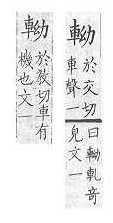 軪
於交切
車聲一
曰軪軋竒
皃文一
軪
於教切車有
機也文一